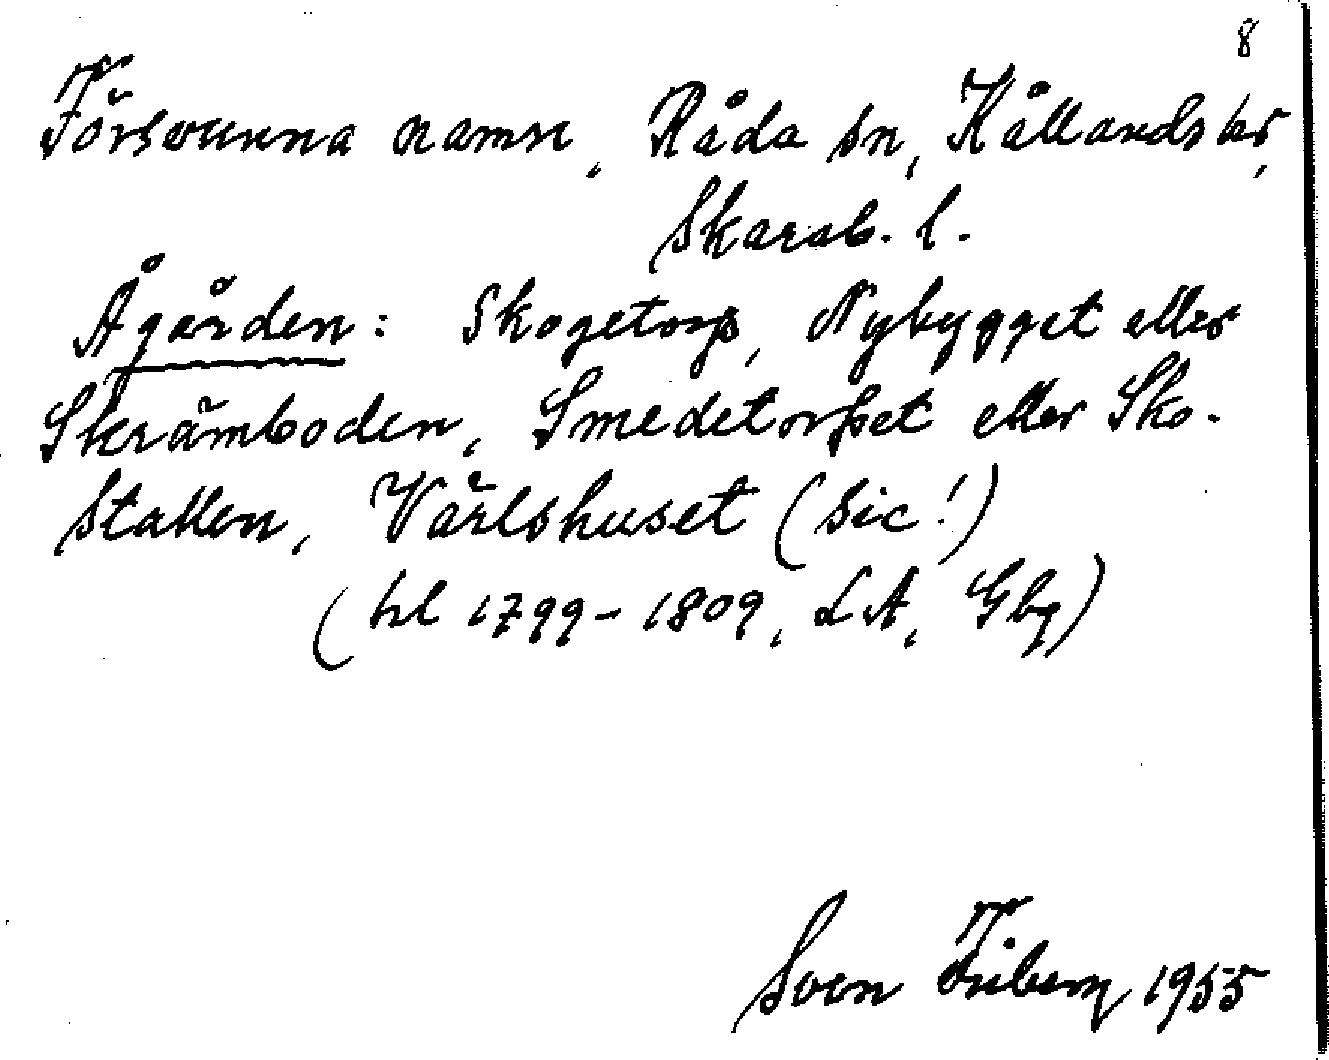 8
Försvunna namn, Råda sn, Kållands hr,
Skarab. l.
Ågården: Skogetorp, Nybygget eller
Skrämboden, Smedetorpet eller Sko-
stallen, Värlshuset (sic!)
(hl 1799-1809, LA, Gbg)
Sven Friberg 1955